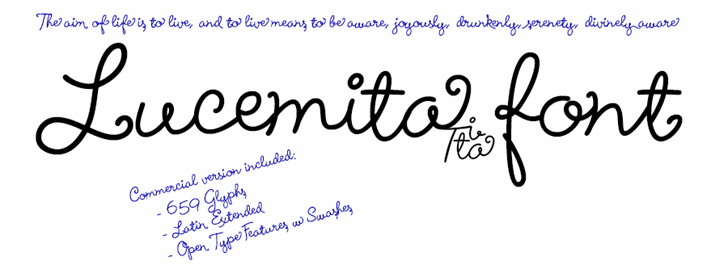 The aim of life is to live, and to live means to be aware, joyously, drunkenly, serenety, divinely aware
Lucemita font
Commercial version included:
- 659 Glyphs
- Latin Extended
- Open Type Features w Swashes